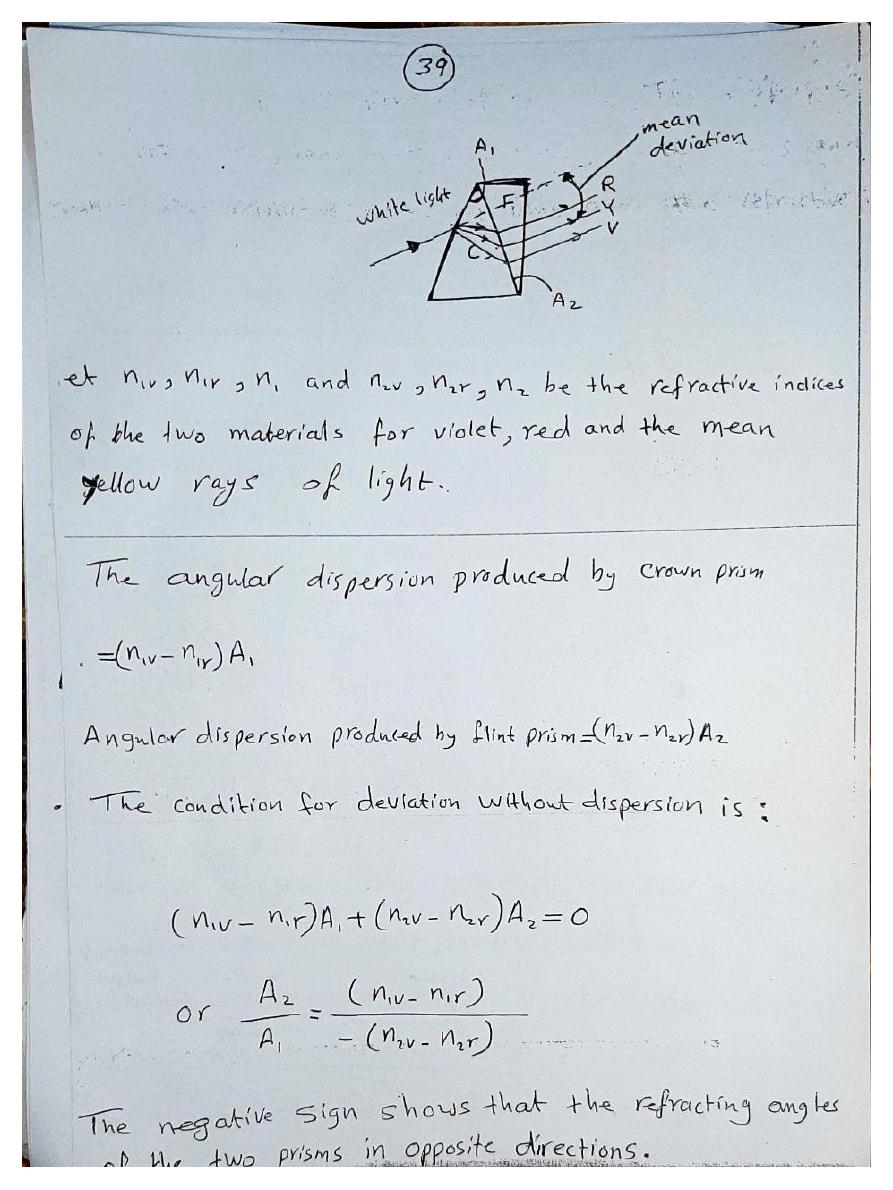 39
mean
deviation
A₁
white light
F
R
Y
V
C
A₂
et n₁ᵥ, n₁r, n₁ and n₂ᵥ, n₂r, n₂ be the refractive indices
of the two materials for violet, red and the mean
yellow rays of light.
The angular dispersion produced by crown prism
=(n₁ᵥ-n₁r) A₁
Angular dispersion produced by flint prism=(n₂ᵥ-n₂r) A₂
• The condition for deviation without dispersion is :
(n₁ᵥ - n₁r)A₁ + (n₂ᵥ - n₂r) A₂ = 0
or A₂/A₁ = (n₁ᵥ - n₁r)/-(n₂ᵥ - n₂r)
The negative sign shows that the refracting angles
of the two prisms in opposite directions.